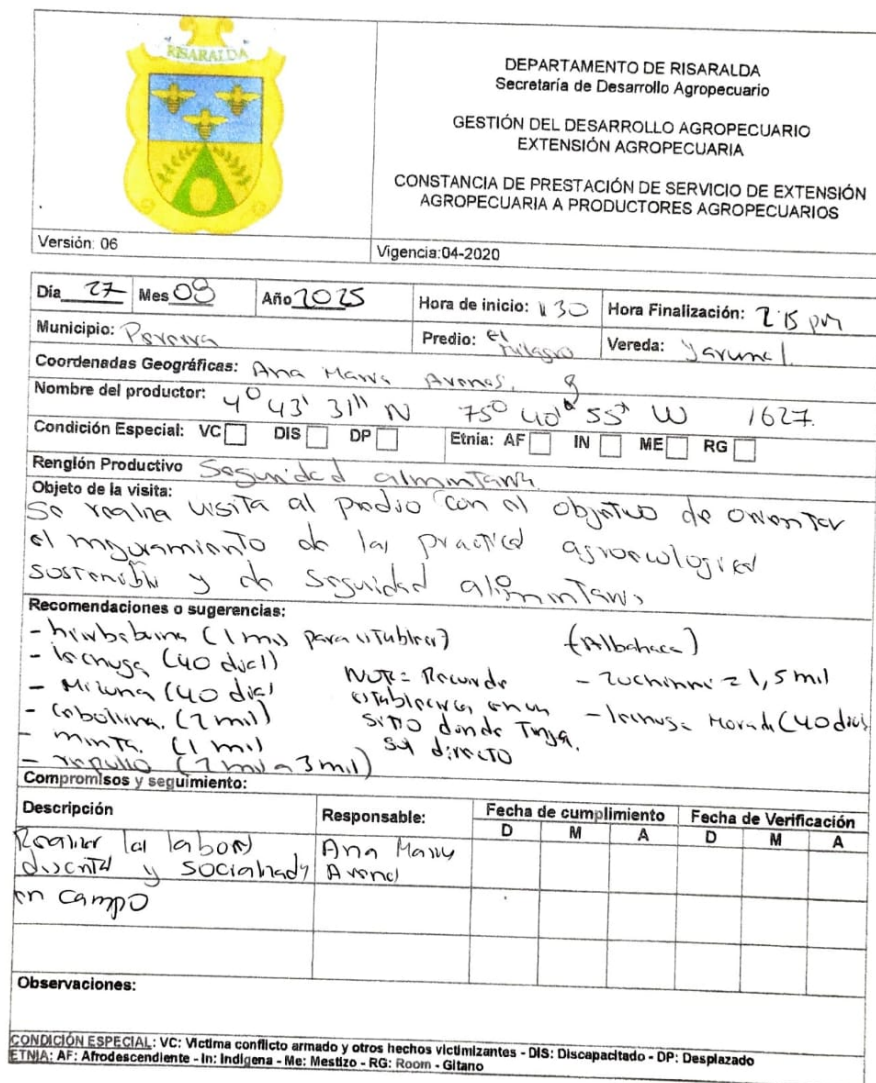 RISARALDA
DEPARTAMENTO DE RISARALDA
Secretaría de Desarrollo Agropecuario
GESTIÓN DEL DESARROLLO AGROPECUARIO
EXTENSIÓN AGROPECUARIA
CONSTANCIA DE PRESTACIÓN DE SERVICIO DE EXTENSIÓN
AGROPECUARIA A PRODUCTORES AGROPECUARIOS
Versión: 06 Vigencia:04-2020
Día 27 Mes Año 2025 Hora de inicio: 1 30 Hora Finalización: 2 15 pm
Municipio: Pereira Predio: el milagro Vereda: Yarumal
Coordenadas Geográficas: Ana Maria Arenas
Nombre del productor: 4° 43' 31" N 75° 40' 55" W 1627.
Condición Especial: VC DIS DP Etnia: AF IN ME RG
Renglón Productivo Seguridad alimentaria
Objeto de la visita:
Se realiza visita al predio con el objetivo de orientar
el mejoramiento de las practicas agroecologicas
sostenible y de seguridad alimentaria
Recomendaciones o sugerencias:
- hierbabuena (1 mes para establecer) (Albahaca)
- lechuga (40 dias)
- Mizuna (40 dias) NOTA= Recuerde - zuchinni = 1,5 mes
- Cebollina. (2 mes) establecerlas en un - lechuga Morada (40 dias)
- menta. (1 mes) sitio donde tenga
- repollo (2 mes a 3 mes) sol directo
Compromisos y seguimiento:
Descripción Responsable: Fecha de cumplimiento Fecha de Verificación
D M A D M A
Realizar las labores Ana Maria
descritas y socializadas Arenas
en campo
Observaciones:
CONDICIÓN ESPECIAL: VC: Victima conflicto armado y otros hechos victimizantes - DIS: Discapacitado - DP: Desplazado
ETNIA: AF: Afrodescendiente - In: Indigena - Me: Mestizo - RG: Room - Gitano